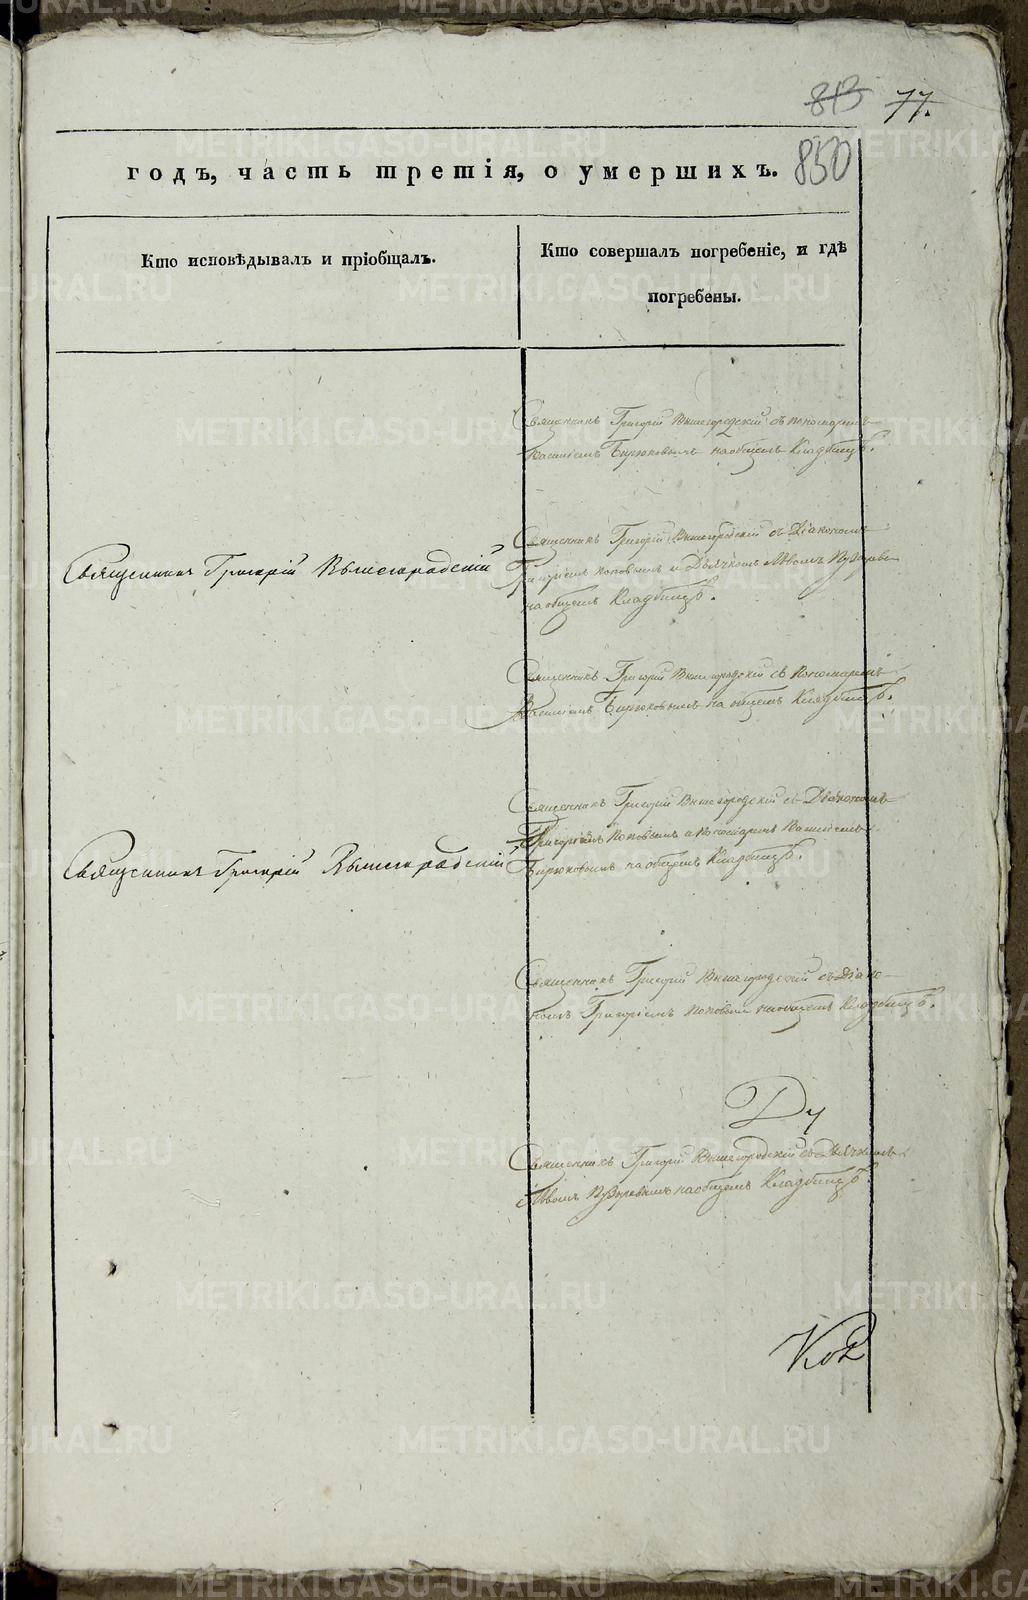 813 77.
годъ, часть третія, о умершихъ. 850
Кто исповѣдывалъ и пріобщалъ.
Кто совершалъ погребеніе, и гдѣ
погребены.
Священникъ Григорій Вышегородскій съ пономаремъ
Василіемъ Бирюковымъ на общемъ Кладбищѣ.
Священникъ Григорій Вышегородскій
Священникъ Григорій Вышегородскій съ Діакономъ
Григоріемъ Поповымъ и Дьячкомъ Львомъ
на общемъ Кладбищѣ.
Священникъ Григорій Вышегородскій съ Пономаремъ
Василіемъ Бирюковымъ на общемъ Кладбищѣ.
Священникъ Григорій Вышегородскій съ Діакономъ
Григоріемъ Поповымъ и Пономаремъ Василіемъ
Священникъ Григорій Вышегородскій
Бирюковымъ на общемъ Кладбищѣ.
Священникъ Григорій Вышегородскій съ Діако-
номъ Григоріемъ Поповымъ на общемъ Кладбищѣ.
Ду
Священникъ Григорій Вышегородскій съ Дьячкомъ
Львомъ на общемъ Кладбищѣ.
METRIKI.GASO-URAL.RU